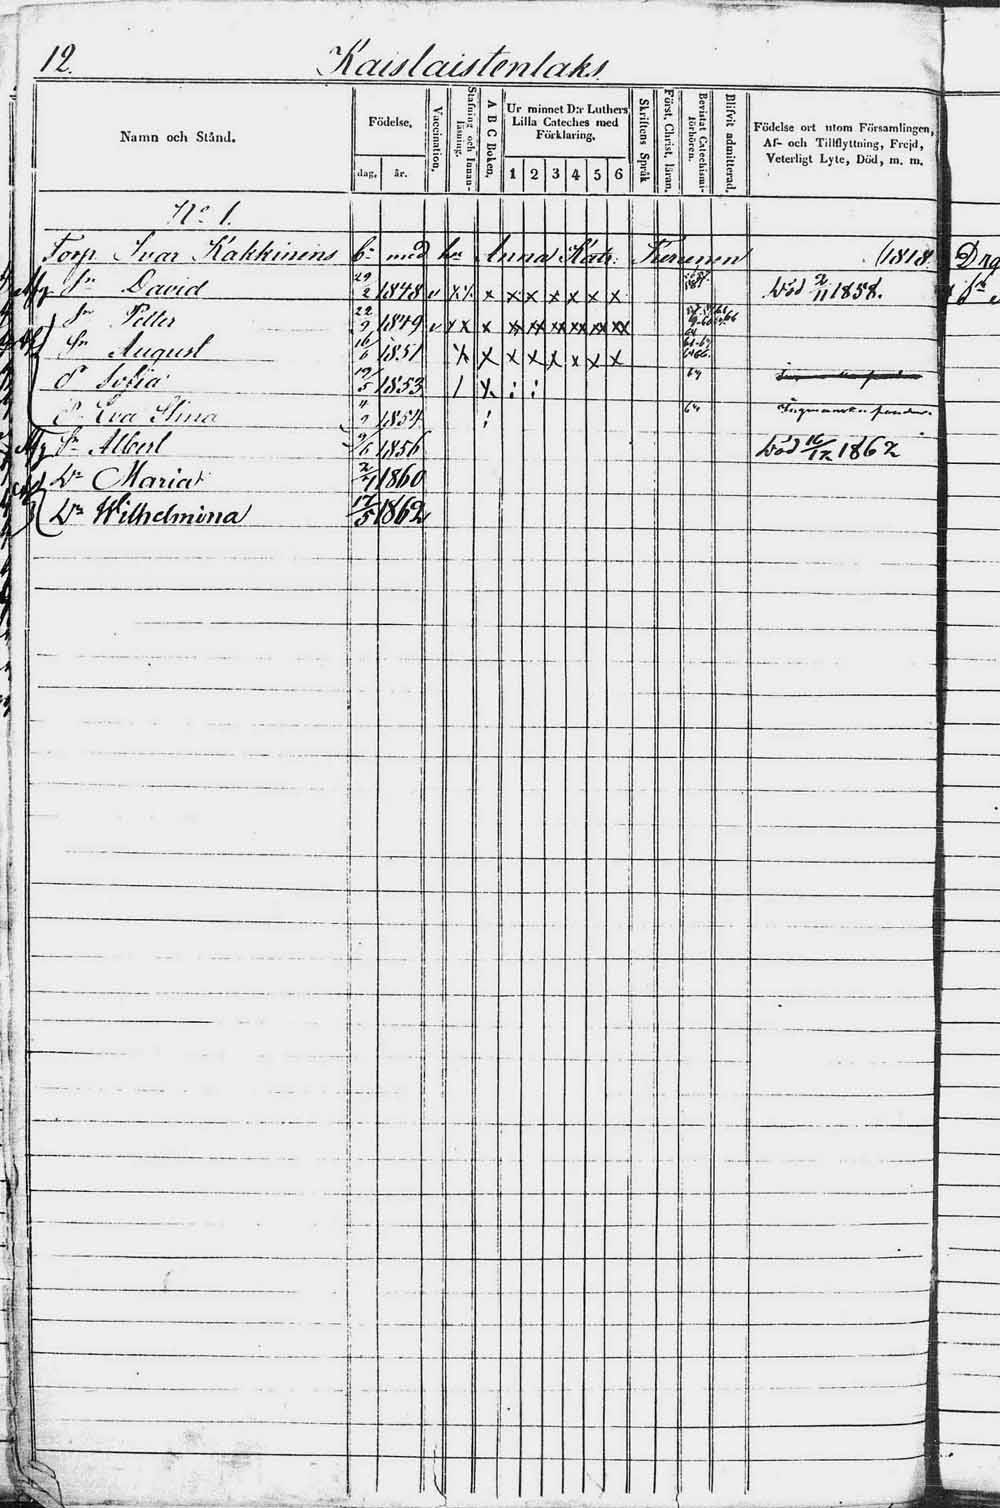 12. Kaislaistenlaks
Namn och Stånd. Födelse, dag, år. Vaccination, Stafning och Innanläsning. A B C Boken, Ur minnet D:r Luthers Lilla Cateches med Förklaring, 1 2 3 4 5 6 Skriftens Språk Först. Christ. läran, Bevistat Catechismiförhören. Blifvit admitterad, Födelse ort utom Församlingen, Af- och Tillflyttning, Frejd, Veterligt Lyte, Död, m. m.
No 1.
Torp Ivar Kakkinens bn med hu Anna Katr. (1818.
Sn David 29/2 1848 v x x x x x x x x x Död 2/11 1858.
Sn Petter 22/9 1849 v x x x xx xx xx xx xx xx
Sn August 16/6 1851 x x x x x x x x
D Sofia 12/5 1853 / x : : 64
D Eva Stina 1854 : 64
Sn Albert 9/6 1856 Död 16/12 1862
Dr Maria 1860
Dr Wilhelmina 17/5 1862